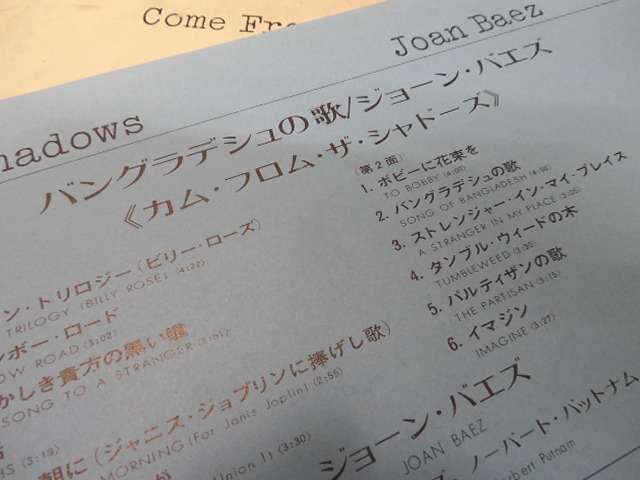 Come Fr
Joan Baez
hadows
バングラデシュの歌/ジョーン・バエズ
《カム・フロム・ザ・シャドーズ》
ン・トリロジー(ビリー・ローズ)
TRILOGY (BILLY ROSE) 〈4:22〉
ンボー・ロード
OW ROAD 〈3:02〉
かしき貴方の黒い鍾
SONG TO A STRANGER
HS 〈3:19〉
朝に(ジャニス・ジョプリンに捧げし歌)
MORNING (For Janis Joplin) 〈2:55〉
Union 1) 〈3:30〉
(第2面)
1. ボビーに花束を
TO BOBBY
2. バングラデシュの歌
SONG OF BANGLADESH
3. ストレンジャー・イン・マイ・プレイス
A STRANGER IN MY PLACE 〈3:05〉
4. タンブル・ウィードの木
TUMBLEWEED 〈3:30〉
5. パルティザンの歌
THE PARTISAN 〈3:13〉
6. イマジン
IMAGINE 〈3:27〉
ジョーン・バエズ
JOAN BAEZ
ノーバート・パットナム
bert Putnam